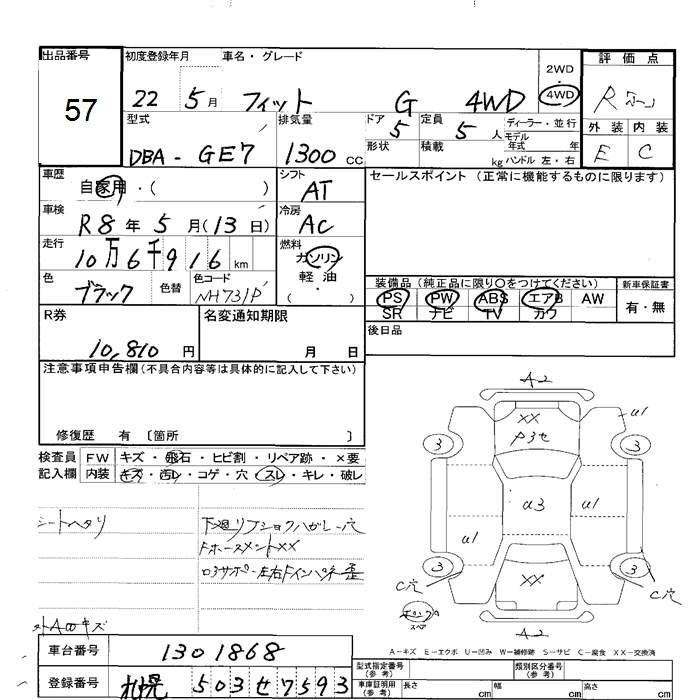 出品番号
57
初度登録年月
22 5月
車名・グレード
フィット G 4WD
2WD
・
4WD
評価点
R
外装 内装
E C
型式
DBA-GE7
排気量
1300 CC
ドア
5
定員
5 人
ディーラー・並行
モデル
年式 年
形状
積載 kg
ハンドル 左・右
車歴
自家用・( )
シフト
AT
セールスポイント (正常に機能するものに限ります)
車検
R8年5月(13日)
冷房
AC
走行
10万6千916 km
燃料
ガソリン
軽油
・
( )
色
ブラック
色替
色コード
NH731P
装備品 (純正品に限り○をつけてください)
PS PW ABS エアB AW
SR ナビ TV カワ
新車保証書
有・無
後日品
R券
10,810 円
名変通知期限
月 日
注意事項申告欄 (不具合内容等は具体的に記入して下さい)
修復歴 有 〔箇所 〕
検査員
記入欄
FW キズ・飛石・ヒビ割・リペア跡・×要
内装 キズ・汚レ・コゲ・穴・スレ・キレ・破レ
シートヘタリ
下廻リフショクハガレー穴
Fホースメント××
ロアサポー左右Fインパネ歪
外AΩキズ
A-2
××
P3セ
u1
3
3
u3
u1
u1
3
3
××
C穴
C穴
スペア
A-2
A-キズ E-エクボ U-凹み W-補修跡 S-サビ C-腐食 XX-交換済
車台番号
1301868
登録番号
札幌 503 せ 7593
型式指定番号
(参考)
類別区分番号
(参考)
車庫証明用
(参考)
長さ cm
幅 cm
高さ cm